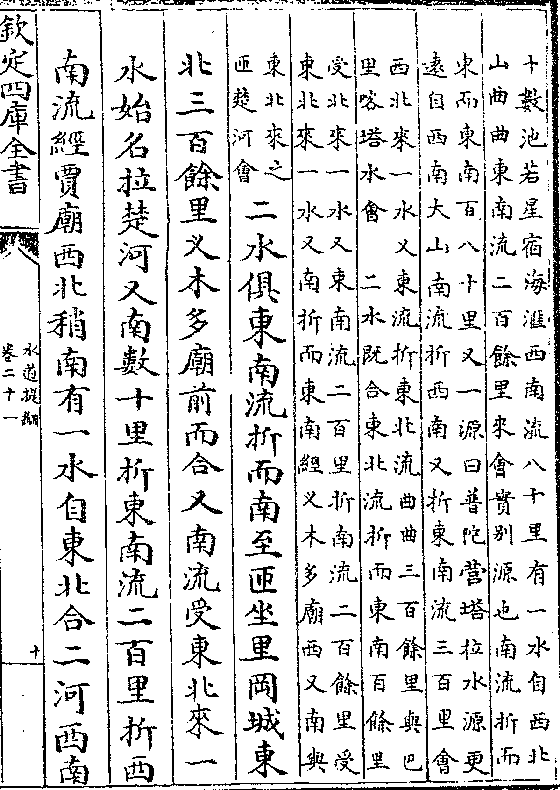 十數池若星宿海滙西南流八十里有一水自西北
山曲曲東南流二百餘里來會實別源也南流折而
東而東南百八十里又一源曰普陀營塔拉水源更
遠自西南大山南流折西南又折東南流三百里會
西北來一水又東流折東北流曲曲三百餘里與巴
里喀塔水會 二水既合東北流折而東南百餘里
受北來一水又東南流二百里折南流二百餘里受
東北來一水又南折而東南經义木多廟西又南與
東北來之
匝楚河會
二水俱東南流折而南至匝坐里岡城東
北三百餘里义木多廟前而合又南流受東北來一
水始名拉楚河又南數十里折東南流二百里折西
南流經賈廟西北稍南有一水自東北合二河西南
欽定四庫全書
水道提綱
卷二十一
十